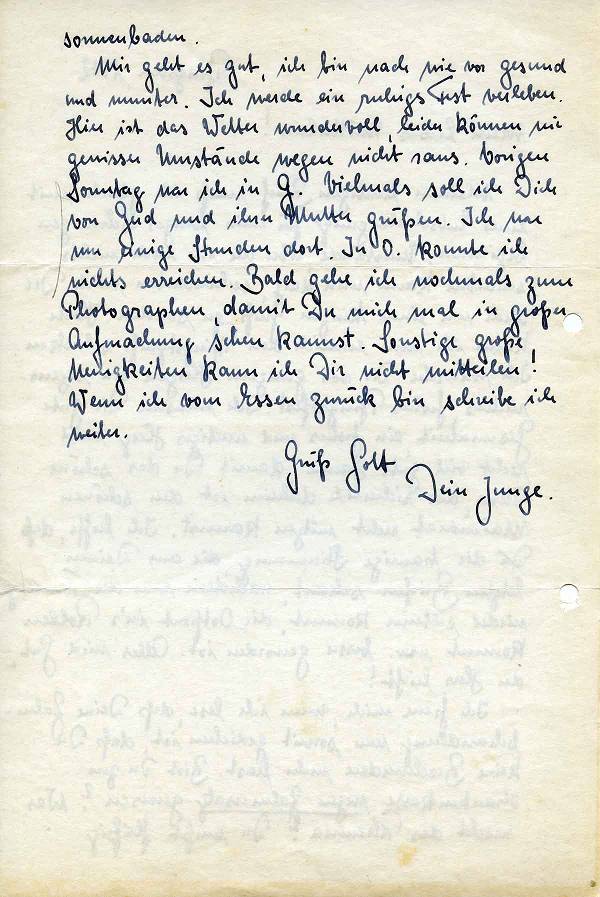 sonnenbaden.
Mir geht es gut, ich bin nach wie vor gesund
und munter. Ich werde ein ruhiges Fest verleben.
Hier ist das Wetter wundervoll, leider können wir
gewisser Umstände wegen nicht raus. Vorigen
Sonntag war ich in G. Vielmals soll ich Dich
von Gud und ihrer Mutter grüßen. Ich war
nur einige Stunden dort. In O. konnte ich
nichts erreichen. Bald gehe ich nochmals zum
Photographen, damit Du mich mal in großer
Aufmachung sehen kannst. Sonstige große
Neuigkeiten kann ich Dir nicht mitteilen!
Wenn ich vom Essen zurück bin schreibe ich
weiter.
Grüß Gott
Dein Junge.